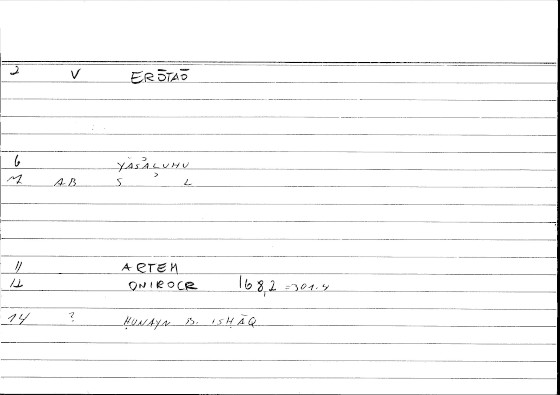 2 V ERŌTAŌ
6 YASʾALUHU
M AB S ʾ L
11 ARTEM
12 ONIROCR 168,2 =301.4
14 ? ḤUNAYN B. ISḤĀQ